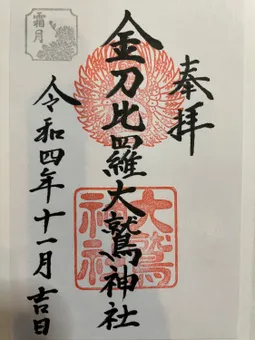 奉拝
金刀比羅大鷲神社
令和四年十一月吉日
霜月
大鷲
神社